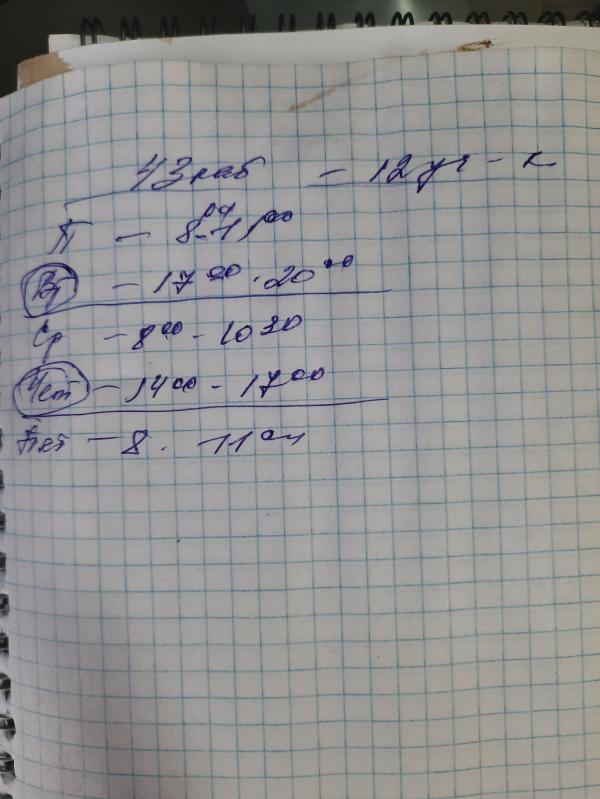 43 каб – 12 уч-к
П – 8⁰⁰-11⁰⁰
Вт – 17⁰⁰-20⁰⁰
Ср – 8⁰⁰-10³⁰
Чет – 14⁰⁰-17⁰⁰
Пят – 8-11⁰⁰